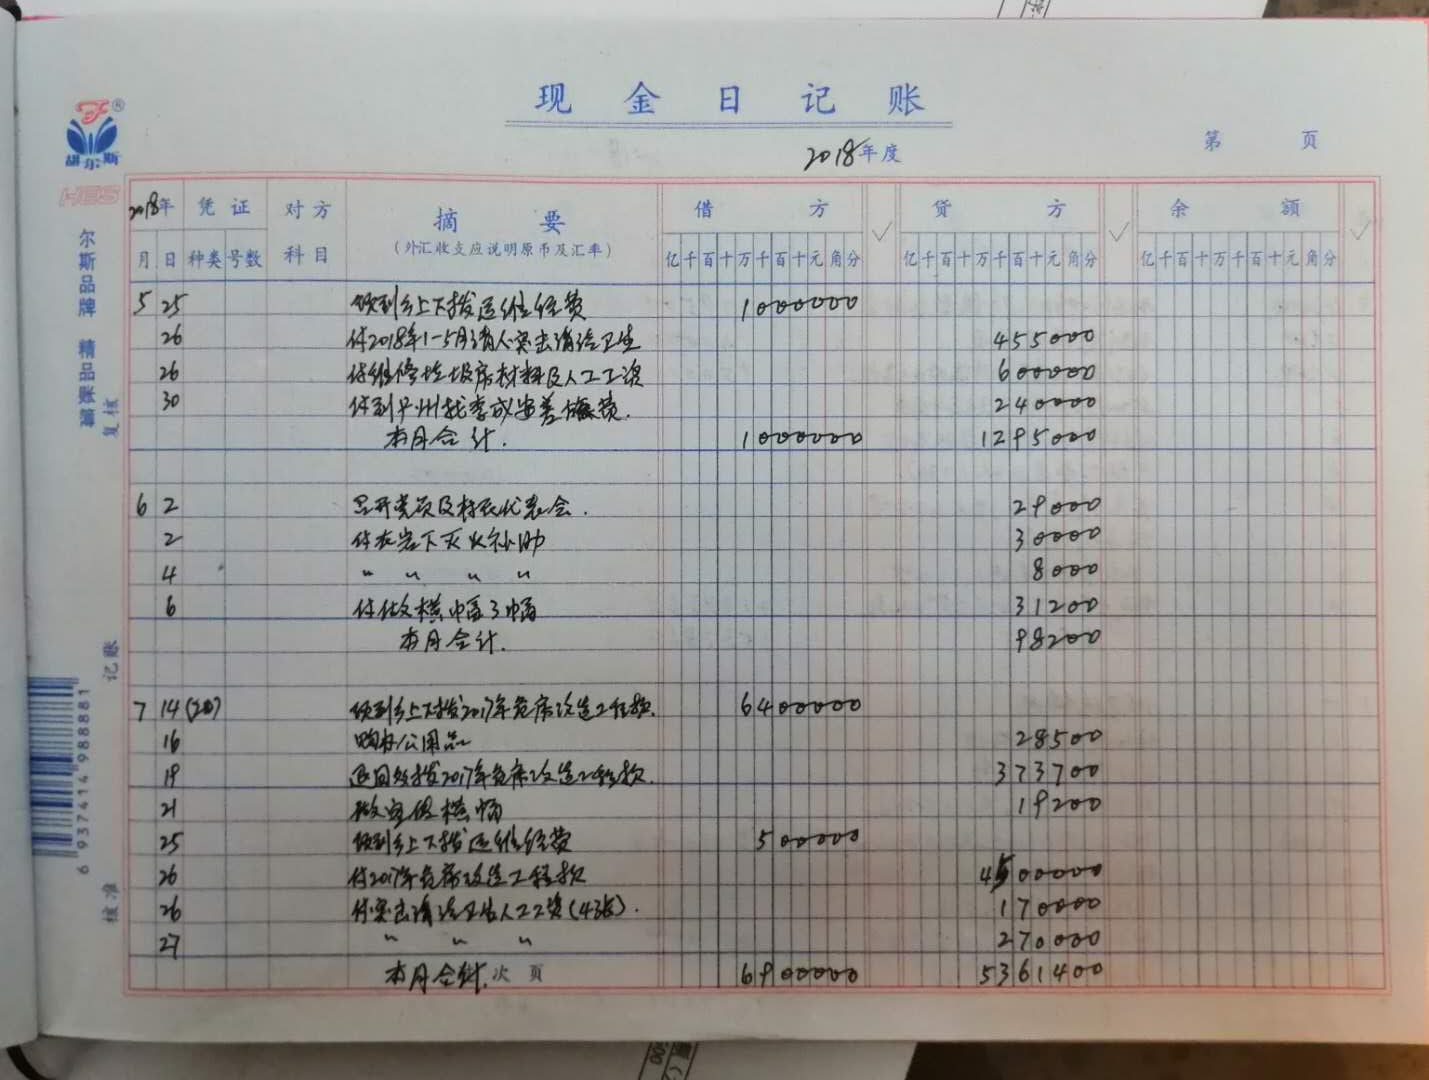 现金日记账
2018年度
第 页
胡尔斯
HES
尔斯品牌 精品账簿
复核
记账
核准
6 937414 988881
2018年 凭证 对方科目 摘要 借方 ✓ 贷方 ✓ 余额 ✓
月 日 种类 号数 (外汇收支应说明原币及汇率) 亿千百十万千百十元角分 亿千百十万千百十元角分 亿千百十万千百十元角分
5 25 领到乡上下拨运维经费 1000000
26 付2018年1-5月请人突击清洁卫生 455000
26 付维修垃圾房材料及人工工资 600000
30 付到 州找李成安差 费. 240000
本月合计. 1000000 1295000
6 2 召开党员及村民代表会. 29000
2 付在岩下灭火补助 30000
4 〃 〃 〃 〃 8000
6 付做横幅3幅 31200
本月合计. 98200
7 14 (20) 领到乡上下拨2017年危房改造工程款. 6400000
16 购办公用品 28500
19 退回 拨2017年危房改造工程款. 373700
21 做宣传横幅 19200
25 领到乡上下拨运维经费 500000
26 付2017年危房改造工程款 4500000
26 付突击清洁卫生人工工资(4张). 170000
27 〃 〃 〃 270000
本月合计. 次页 6900000 5361400